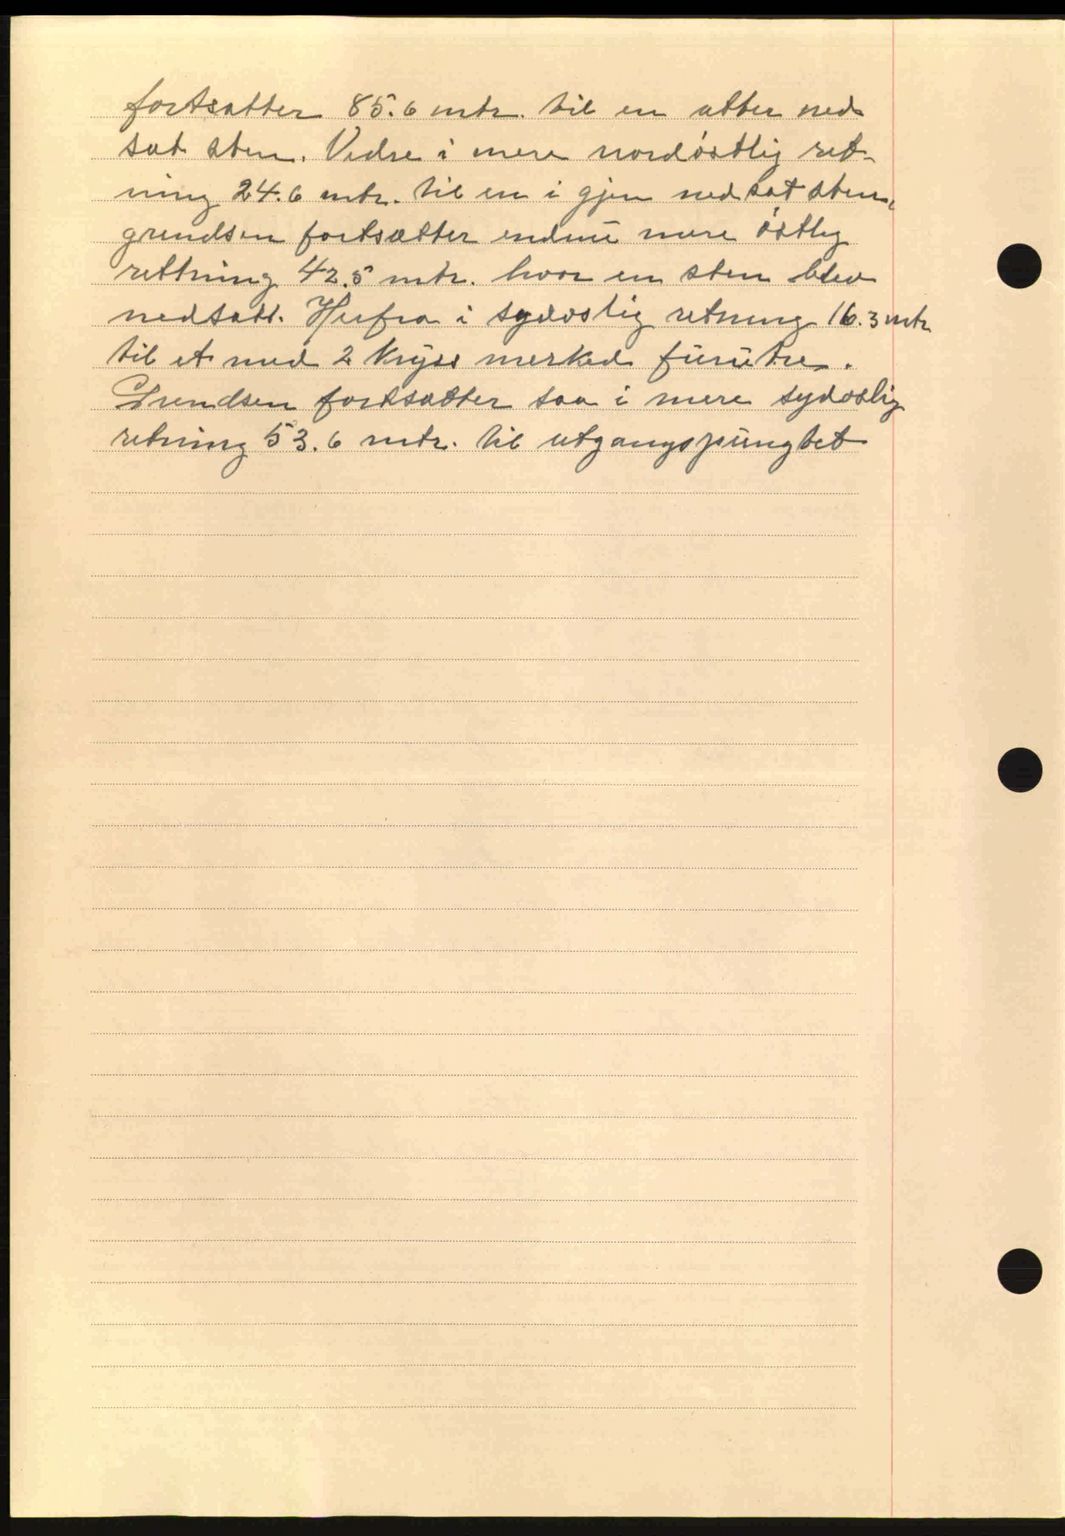 fortsatter 85.6 mtr. til en atter ned
sat sten. Vidre i mere nordöstlig ret-
ning 24.6 mtr. til en i gjen nedsat sten,
grendsen fortsætter endnu mere östlig
rettning 42.5 mtr. hvor en sten blev
nedsatt. Herfra i sydostig retning 16.3 mtr
til et med 2 kryss merked furutre.
Grendsen fortsætter saa i mere sydoslig
retning 53.6 mtr. til utgangspungtet